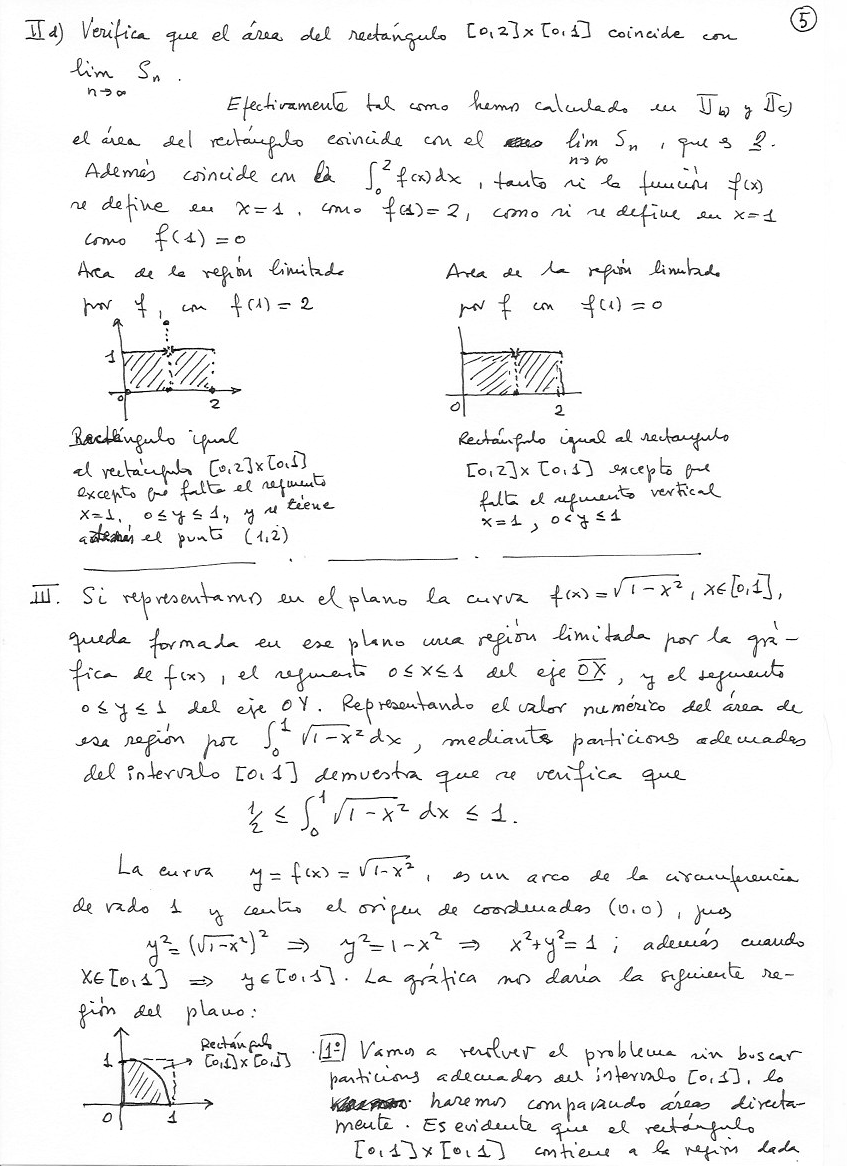 5
II d) Verifica que el área del rectángulo [0,2]×[0,1] coincide con
lim Sn.
n→∞
Efectivamente tal como hemos calculado en II b) y II c)
el área del rectángulo coincide con el lim Sn, que es 2.
n→∞
Además coincide con la ∫₀² f(x)dx, tanto si la función f(x)
se define en x=1, como f(1)=2, como si se define en x=1
como f(1)=0
Area de la región limitada
por f, con f(1)=2
1
0
2
Rectángulo igual
al rectángulo [0,2]×[0,1]
excepto que falta el segmento
x=1, 0≤y≤1, y se tiene
además el punto (1,2)
Area de la región limitada
por f con f(1)=0
0
2
Rectángulo igual al rectangulo
[0,2]×[0,1] excepto que
falta el segmento vertical
x=1, 0<y≤1
III. Si representamos en el plano la curva f(x)=√1-x², x∈[0,1],
queda formada en ese plano una región limitada por la grá-
fica de f(x), el segmento 0≤x≤1 del eje OX, y el segmento
0≤y≤1 del eje OY. Representando el valor numérico del área de
esa región por ∫₀¹ √1-x² dx, mediante particions adecuadas
del intervalo [0,1] demuestra que se verifica que
1/2 ≤ ∫₀¹ √1-x² dx ≤ 1.
La curva y=f(x)=√1-x², es un arco de la circunferencia
de radio 1 y centro el origen de coordenadas (0,0), pues
y²=(√1-x²)² ⇒ y²=1-x² ⇒ x²+y²=1; además cuando
x∈[0,1] ⇒ y∈[0,1]. La gráfica nos daría la siguiente re-
gión del plano:
1
0
1
Rectángulo
[0,1]×[0,1]
1º Vamos a resolver el problema sin buscar
particions adecuadas del intervalo [0,1], lo
haremos comparando áreas directa-
mente. Es evidente que el rectángulo
[0,1]×[0,1] contiene a la región dada